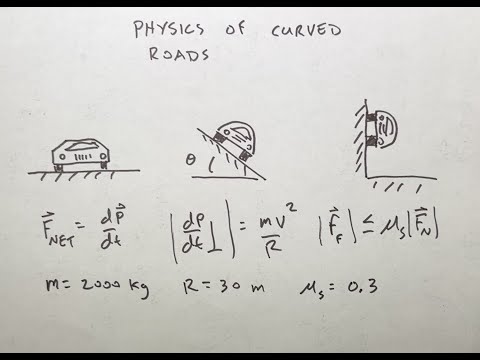 PHYSICS OF CURVED
ROADS
θ
F⃗_NET = dP⃗/dt   |dP/dt ⊥| = mv²/R   |F⃗_F| ≤ μ_s|F⃗_N|
m = 2000 kg   R = 30 m   μ_s = 0.3